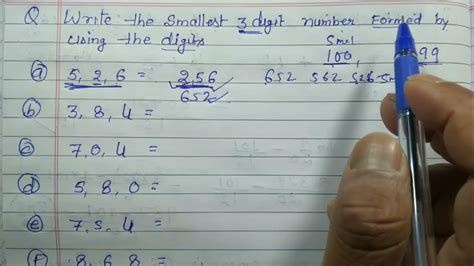 Q. Write the Smallest 3 digit number Formed by
Using the digits
Smal
100, 99
(a) 5, 2, 6 = 256 652 562 526
652
(b) 3, 8, 4 =
(c) 7, 0, 4 =
(d) 5, 8, 0 =
(e) 7, 5, 4 =
(f) 8, 6, 8 =